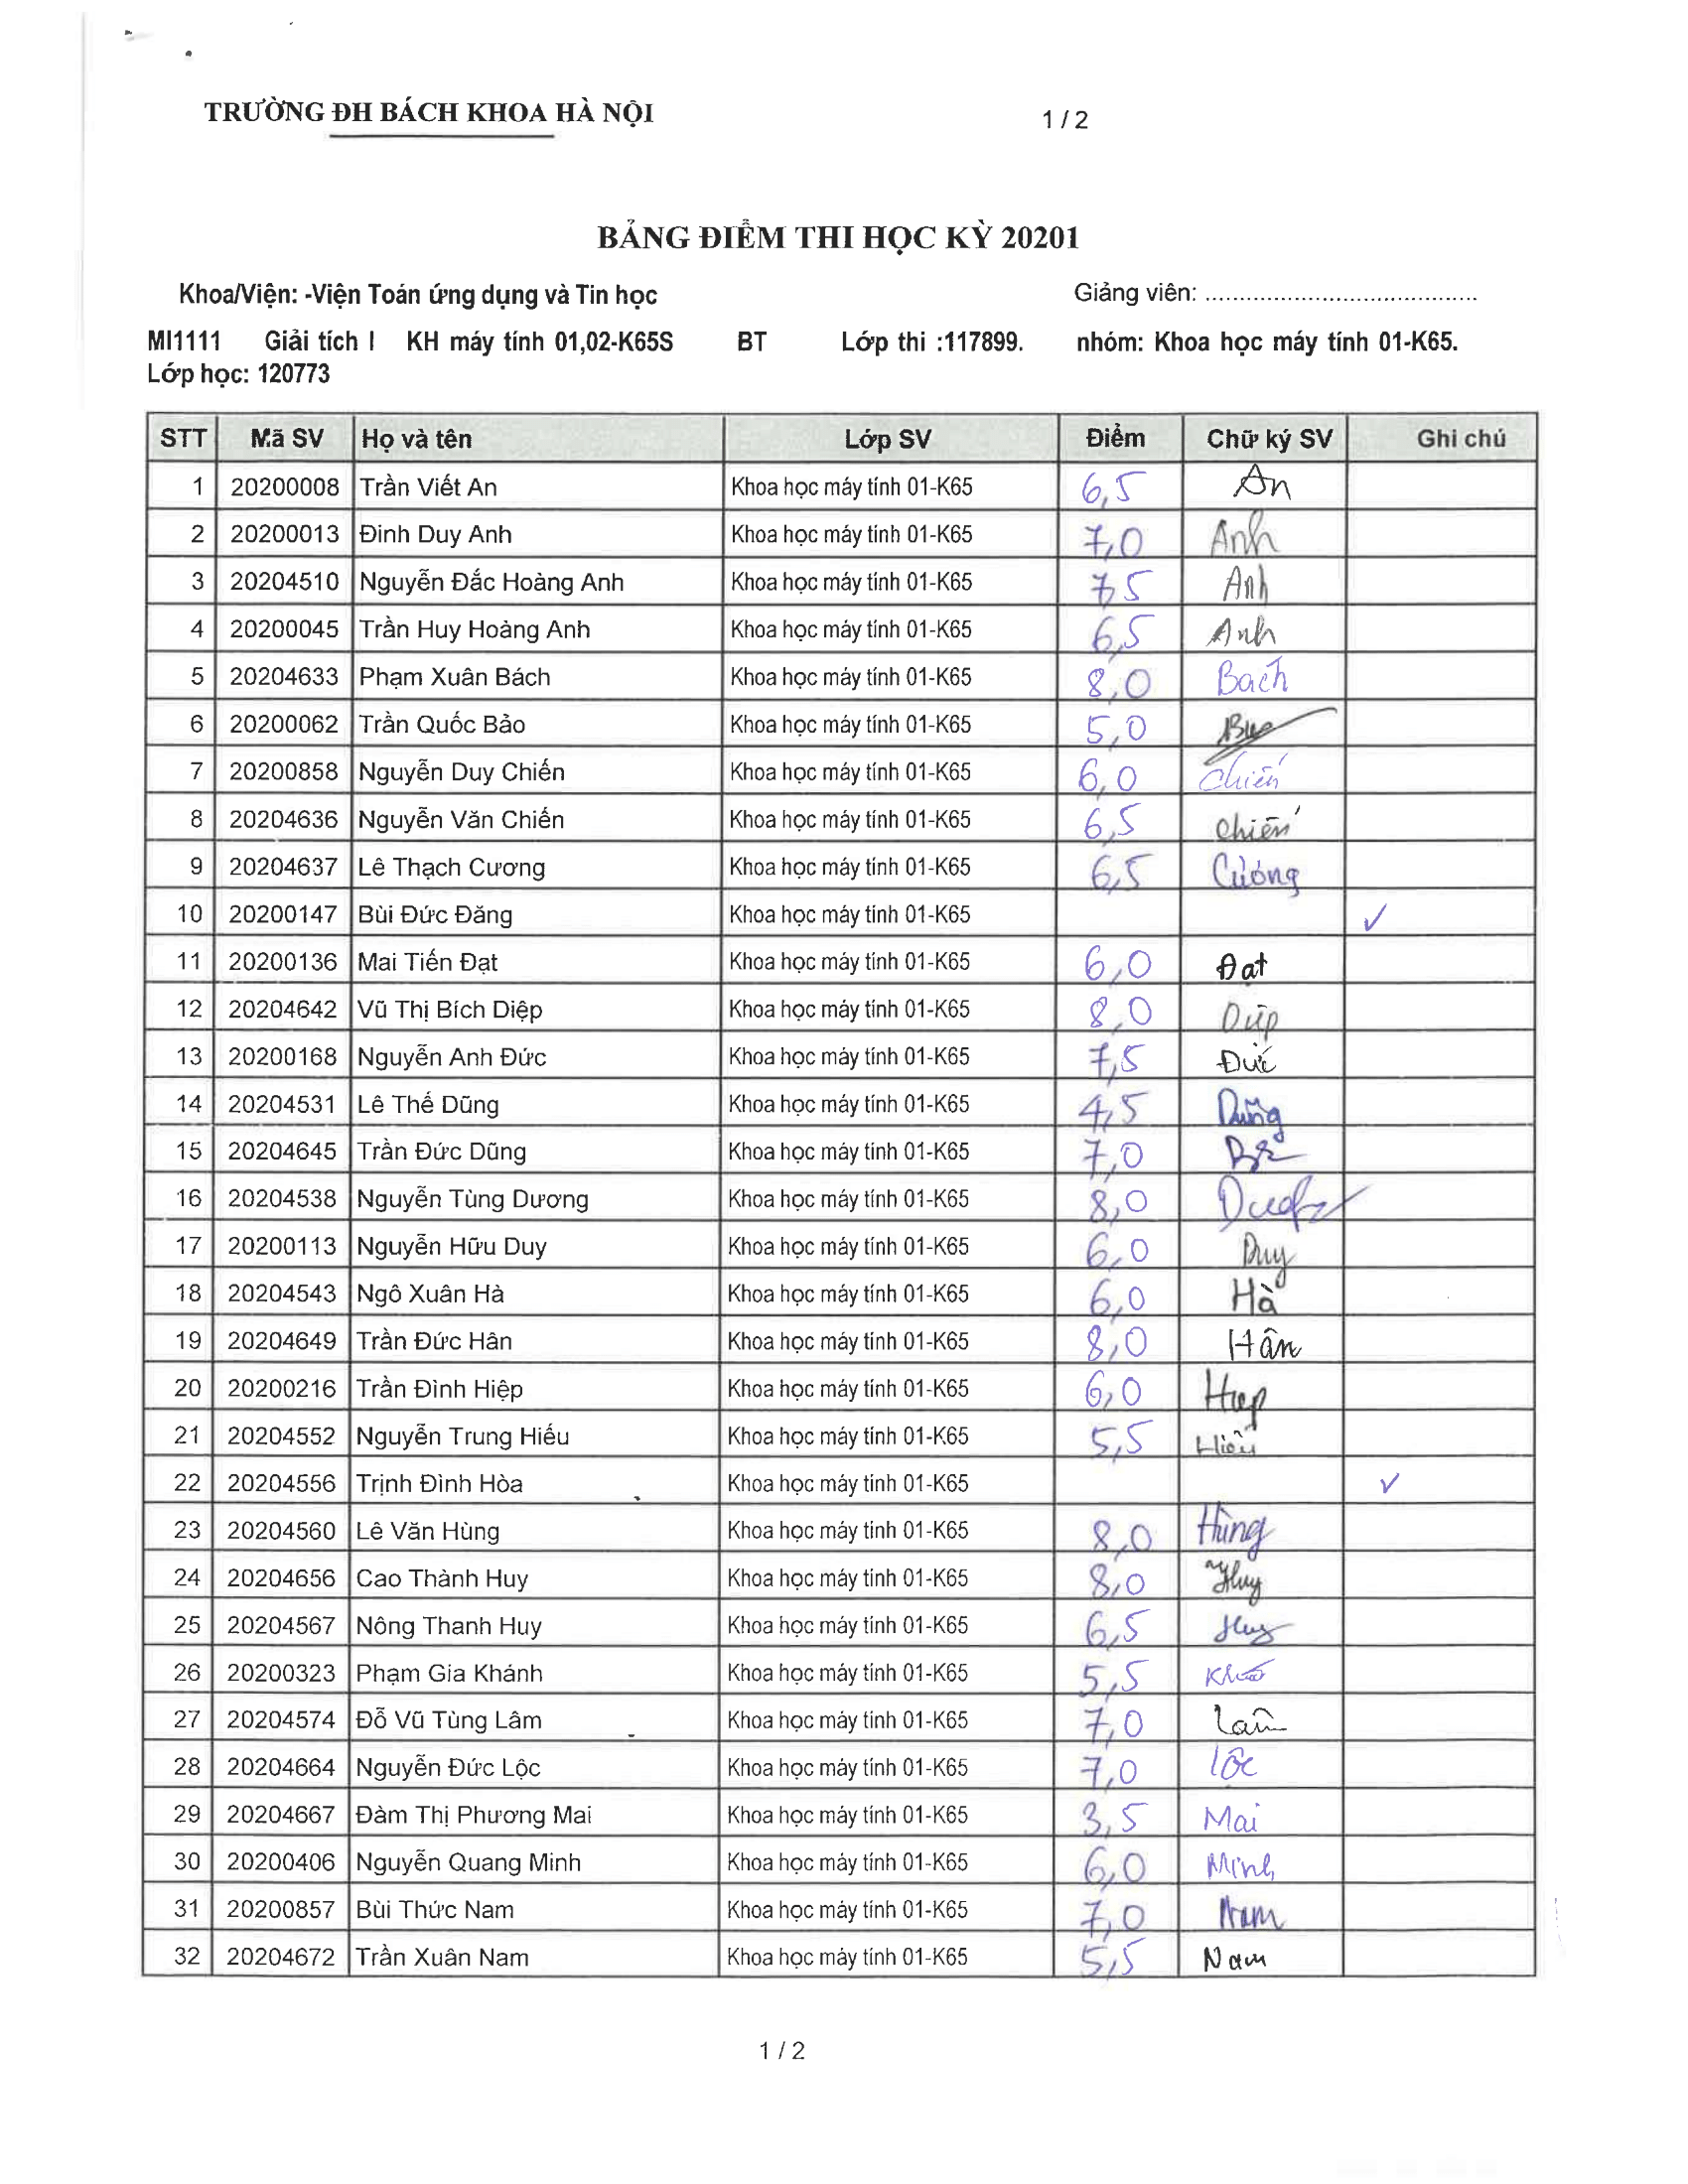 TRƯỜNG ĐH BÁCH KHOA HÀ NỘI 1 / 2
BẢNG ĐIỂM THI HỌC KỲ 20201
Khoa/Viện: -Viện Toán ứng dụng và Tin học Giảng viên: ........................................
MI1111 Giải tích I KH máy tính 01,02-K65S BT Lớp thi :117899. nhóm: Khoa học máy tính 01-K65.
Lớp học: 120773
STT Mã SV Họ và tên Lớp SV Điểm Chữ ký SV Ghi chú
1 20200008 Trần Viết An Khoa học máy tính 01-K65 6,5 An
2 20200013 Đinh Duy Anh Khoa học máy tính 01-K65 7,0 Anh
3 20204510 Nguyễn Đắc Hoàng Anh Khoa học máy tính 01-K65 7,5 Anh
4 20200045 Trần Huy Hoàng Anh Khoa học máy tính 01-K65 6,5 Anh
5 20204633 Phạm Xuân Bách Khoa học máy tính 01-K65 8,0 Bách
6 20200062 Trần Quốc Bảo Khoa học máy tính 01-K65 5,0
7 20200858 Nguyễn Duy Chiến Khoa học máy tính 01-K65 6,0 Chiến
8 20204636 Nguyễn Văn Chiến Khoa học máy tính 01-K65 6,5 Chiến
9 20204637 Lê Thạch Cương Khoa học máy tính 01-K65 6,5 Cương
10 20200147 Bùi Đức Đăng Khoa học máy tính 01-K65 ✓
11 20200136 Mai Tiến Đạt Khoa học máy tính 01-K65 6,0 Đạt
12 20204642 Vũ Thị Bích Diệp Khoa học máy tính 01-K65 8,0 Diệp
13 20200168 Nguyễn Anh Đức Khoa học máy tính 01-K65 7,5 Đức
14 20204531 Lê Thế Dũng Khoa học máy tính 01-K65 4,5 Dũng
15 20204645 Trần Đức Dũng Khoa học máy tính 01-K65 7,0
16 20204538 Nguyễn Tùng Dương Khoa học máy tính 01-K65 8,0
17 20200113 Nguyễn Hữu Duy Khoa học máy tính 01-K65 6,0 Duy
18 20204543 Ngô Xuân Hà Khoa học máy tính 01-K65 6,0 Hà
19 20204649 Trần Đức Hân Khoa học máy tính 01-K65 8,0 Hân
20 20200216 Trần Đình Hiệp Khoa học máy tính 01-K65 6,0 Hiệp
21 20204552 Nguyễn Trung Hiếu Khoa học máy tính 01-K65 5,5 Hiếu
22 20204556 Trịnh Đình Hòa Khoa học máy tính 01-K65 ✓
23 20204560 Lê Văn Hùng Khoa học máy tính 01-K65 8,0 Hùng
24 20204656 Cao Thành Huy Khoa học máy tính 01-K65 8,0 Huy
25 20204567 Nông Thanh Huy Khoa học máy tính 01-K65 6,5 Huy
26 20200323 Phạm Gia Khánh Khoa học máy tính 01-K65 5,5
27 20204574 Đỗ Vũ Tùng Lâm Khoa học máy tính 01-K65 7,0 Lâm
28 20204664 Nguyễn Đức Lộc Khoa học máy tính 01-K65 7,0 Lộc
29 20204667 Đàm Thị Phương Mai Khoa học máy tính 01-K65 3,5 Mai
30 20200406 Nguyễn Quang Minh Khoa học máy tính 01-K65 6,0 Minh
31 20200857 Bùi Thức Nam Khoa học máy tính 01-K65 7,0 Nam
32 20204672 Trần Xuân Nam Khoa học máy tính 01-K65 5,5 Nam
1 / 2